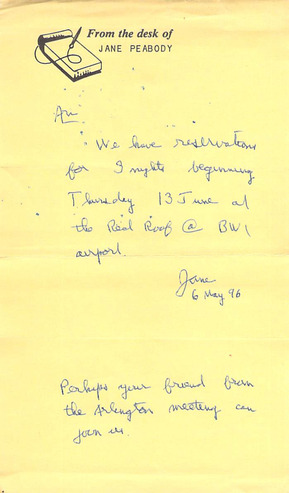 From the desk of
JANE PEABODY
We have reservations
for 3 nights beginning
Thursday 13 June at
the Red Roof @ BWI
airport.
Jane
6 May 96
Perhaps your friend from
the Arlington meeting can
join us.